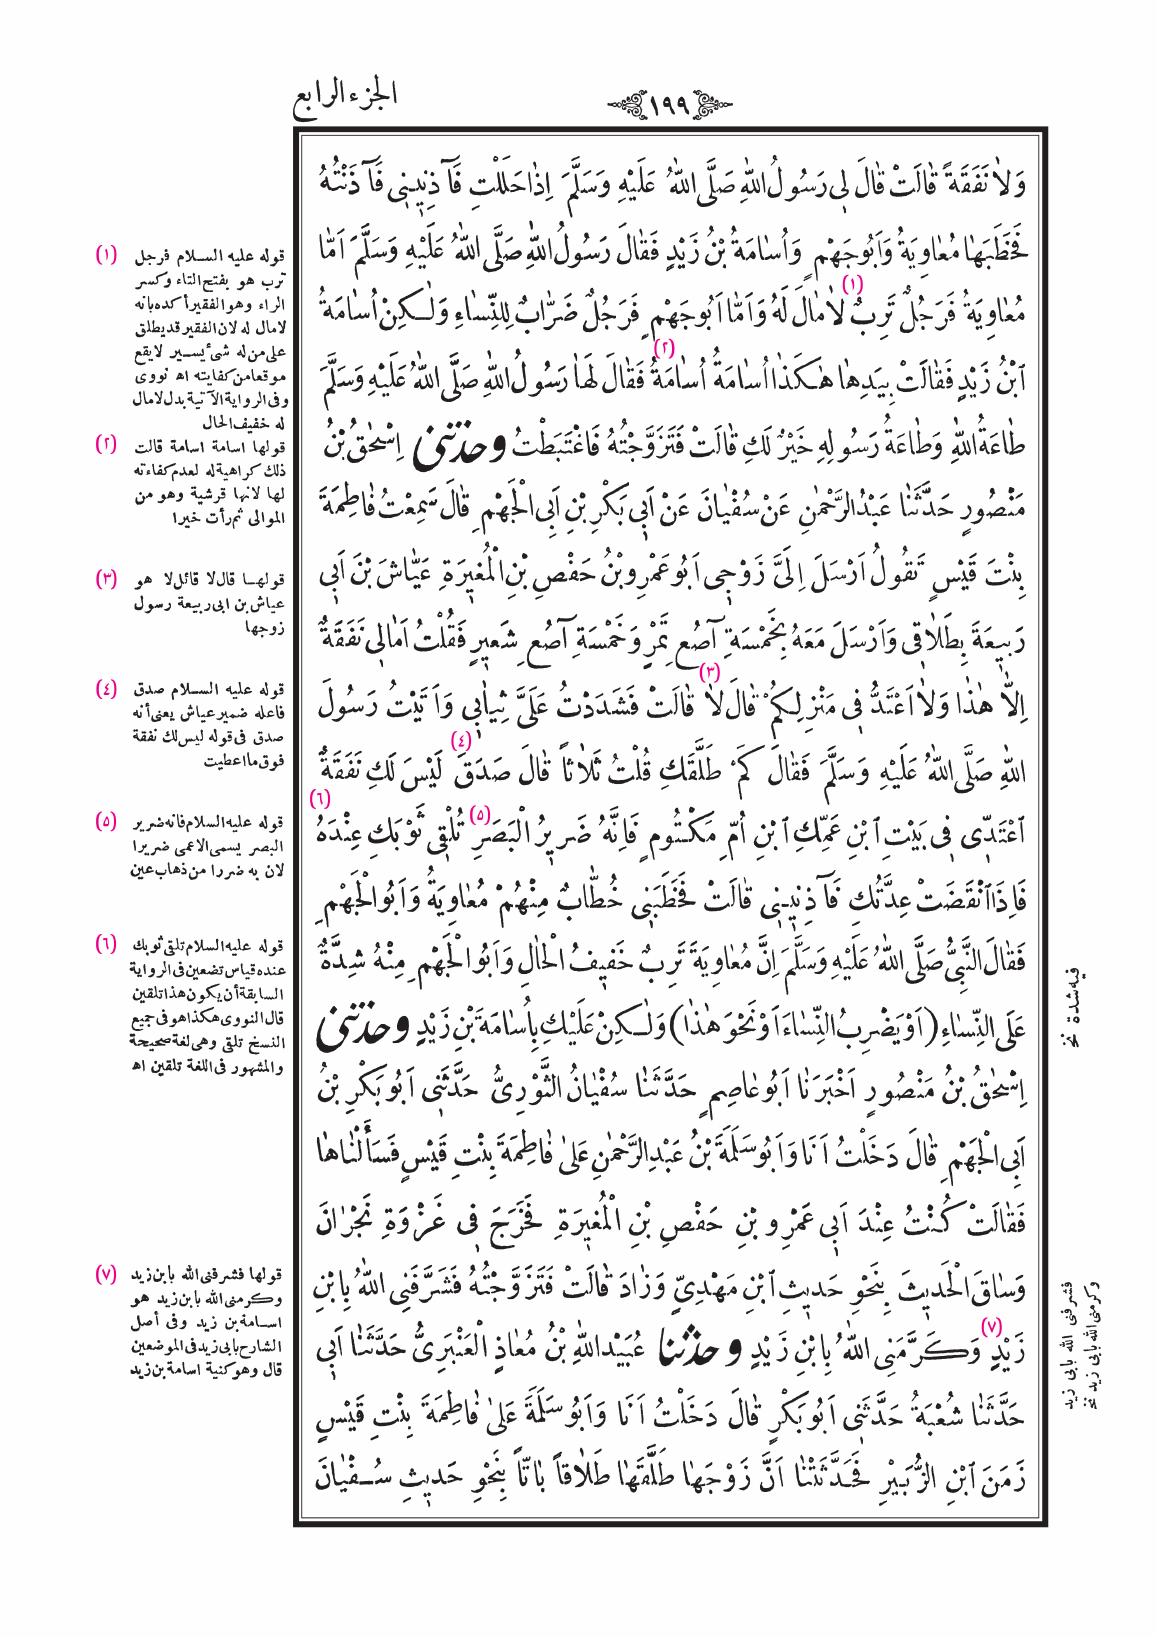 ١٩٩
الجزء الرابع
وَلَا نَفَقَةً قَالَتْ قَالَ لِي رَسُولُ اللهِ صَلَّى اللهُ عَلَيْهِ وَسَلَّمَ اِذَا حَلَلْتِ فَآذِنِينِي فَآذَنْتُهُ
فَخَطَبَهَا مُعَاوِيَةُ وَاَبُوجَهْمٍ وَاُسَامَةُ بْنُ زَيْدٍ فَقَالَ رَسُولُ اللهِ صَلَّى اللهُ عَلَيْهِ وَسَلَّمَ اَمَّا
مُعَاوِيَةُ فَرَجُلٌ تَرِبٌ (١) لَا مَالَ لَهُ وَاَمَّا اَبُوجَهْمٍ فَرَجُلٌ ضَرَّابٌ لِلنِّسَاءِ وَلٰكِنْ اُسَامَةُ
ابْنُ زَيْدٍ فَقَالَتْ بِيَدِهَا هٰكَذَا اُسَامَةُ اُسَامَةُ (٢) فَقَالَ لَهَا رَسُولُ اللهِ صَلَّى اللهُ عَلَيْهِ وَسَلَّمَ
طَاعَةُ اللهِ وَطَاعَةُ رَسُولِهِ خَيْرٌ لَكِ قَالَتْ فَتَزَوَّجْتُهُ فَاغْتَبَطْتُ وحدثني اِسْحٰقُ بْنُ
مَنْصُورٍ حَدَّثَنَا عَبْدُ الرَّحْمٰنِ عَنْ سُفْيَانَ عَنْ اَبِي بَكْرِ بْنِ اَبِي الْجَهْمِ قَالَ سَمِعْتُ فَاطِمَةَ
بِنْتَ قَيْسٍ تَقُولُ اَرْسَلَ اِلَيَّ زَوْجِي اَبُو عَمْرِو بْنُ حَفْصِ بْنِ الْمُغِيرَةِ عَيَّاشَ بْنَ اَبِي
رَبِيعَةَ بِطَلَاقِي وَاَرْسَلَ مَعَهُ بِخَمْسَةِ آصُعِ تَمْرٍ وَخَمْسَةِ آصُعِ شَعِيرٍ فَقُلْتُ اَمَالِي نَفَقَةٌ
اِلَّا هٰذَا وَلَا اَعْتَدُّ فِي مَنْزِلِكُمْ قَالَ لَا (٣) قَالَتْ فَشَدَدْتُ عَلَيَّ ثِيَابِي وَاَتَيْتُ رَسُولَ
اللهِ صَلَّى اللهُ عَلَيْهِ وَسَلَّمَ فَقَالَ كَمْ طَلَّقَكِ قُلْتُ ثَلَاثاً قَالَ صَدَقَ (٤) لَيْسَ لَكِ نَفَقَةٌ
اعْتَدِّي فِي بَيْتِ ابْنِ عَمِّكِ ابْنِ اُمِّ مَكْتُومٍ فَاِنَّهُ ضَرِيرُ الْبَصَرِ (٥) تُلْقِي ثَوْبَكِ عِنْدَهُ (٦)
فَاِذَا انْقَضَتْ عِدَّتُكِ فَآذِنِينِي قَالَتْ فَخَطَبَنِي خُطَّابٌ مِنْهُمْ مُعَاوِيَةُ وَاَبُو الْجَهْمِ
فَقَالَ النَّبِيُّ صَلَّى اللهُ عَلَيْهِ وَسَلَّمَ اِنَّ مُعَاوِيَةَ تَرِبٌ خَفِيفُ الْحَالِ وَاَبُو الْجَهْمِ مِنْهُ شِدَّةٌ
عَلَى النِّسَاءِ (اَوْ يَضْرِبُ النِّسَاءَ اَوْ نَحْوَ هٰذَا) وَلٰكِنْ عَلَيْكِ بِاُسَامَةَ بْنِ زَيْدٍ وحدثني
اِسْحٰقُ بْنُ مَنْصُورٍ اَخْبَرَنَا اَبُو عَاصِمٍ حَدَّثَنَا سُفْيَانُ الثَّوْرِيُّ حَدَّثَنِي اَبُو بَكْرِ بْنُ
اَبِي الْجَهْمِ قَالَ دَخَلْتُ اَنَا وَاَبُو سَلَمَةَ بْنُ عَبْدِ الرَّحْمٰنِ عَلَى فَاطِمَةَ بِنْتِ قَيْسٍ فَسَأَلْنَاهَا
فَقَالَتْ كُنْتُ عِنْدَ اَبِي عَمْرِو بْنِ حَفْصِ بْنِ الْمُغِيرَةِ فَخَرَجَ فِي غَزْوَةِ نَجْرَانَ
وَسَاقَ الْحَدِيثَ بِنَحْوِ حَدِيثِ ابْنِ مَهْدِيٍّ وَزَادَ قَالَتْ فَتَزَوَّجْتُهُ فَشَرَّفَنِي اللهُ بِابْنِ
زَيْدٍ (٧) وَكَرَّمَنِي اللهُ بِابْنِ زَيْدٍ وحدثنا عُبَيْدُ اللهِ بْنُ مُعَاذٍ الْعَنْبَرِيُّ حَدَّثَنَا اَبِي
حَدَّثَنَا شُعْبَةُ حَدَّثَنِي اَبُو بَكْرٍ قَالَ دَخَلْتُ اَنَا وَاَبُو سَلَمَةَ عَلَى فَاطِمَةَ بِنْتِ قَيْسٍ
زَمَنَ ابْنِ الزُّبَيْرِ فَحَدَّثَتْنَا اَنَّ زَوْجَهَا طَلَّقَهَا طَلَاقاً بَاتّاً بِنَحْوِ حَدِيثِ سُفْيَانَ
(١) قوله عليه السلام فرجل
ترب هو بفتح التاء وكسر
الراء وهو الفقير أكده بانه
لامال له لان الفقير قد يطلق
على من له شئ يسير لايقع
موقعا من كفايته اه نووى
وفى الرواية الآتية بدل لامال
له خفيف الحال
(٢) قولها اسامة اسامة قالت
ذلك كراهية له لعدم كفاءته
لها لانها قرشية وهو من
الموالى ثم رأت خيرا
(٣) قولها قال لا قائل لا هو
عياش بن ابى ربيعة رسول
زوجها
(٤) قوله عليه السلام صدق
فاعله ضمير عياش يعنى أنه
صدق فى قوله ليس لك نفقة
فوق ما اعطيت
(٥) قوله عليه السلام فانه ضرير
البصر يسمى الاعمى ضريرا
لان به ضررا من ذهاب عين
(٦) قوله عليه السلام تلقى ثوبك
عنده قياس تضعين فى الرواية
السابقة أن يكون هذا تلقين
قال النووى هكذا هو فى جميع
النسخ تلقى وهى لغة صحيحة
والمشهور فى اللغة تلقين اه
(٧) قولها فشرفنى الله بابن زيد
وكرمنى الله بابن زيد هو
اسامة بن زيد وفى أصل
الشارح بابى زيد فى الموضعين
قال وهو كنية اسامة بن زيد
فيه شدة نخ
فشرفنى الله بابى زيد
وكرمنى الله بابى زيد نخ